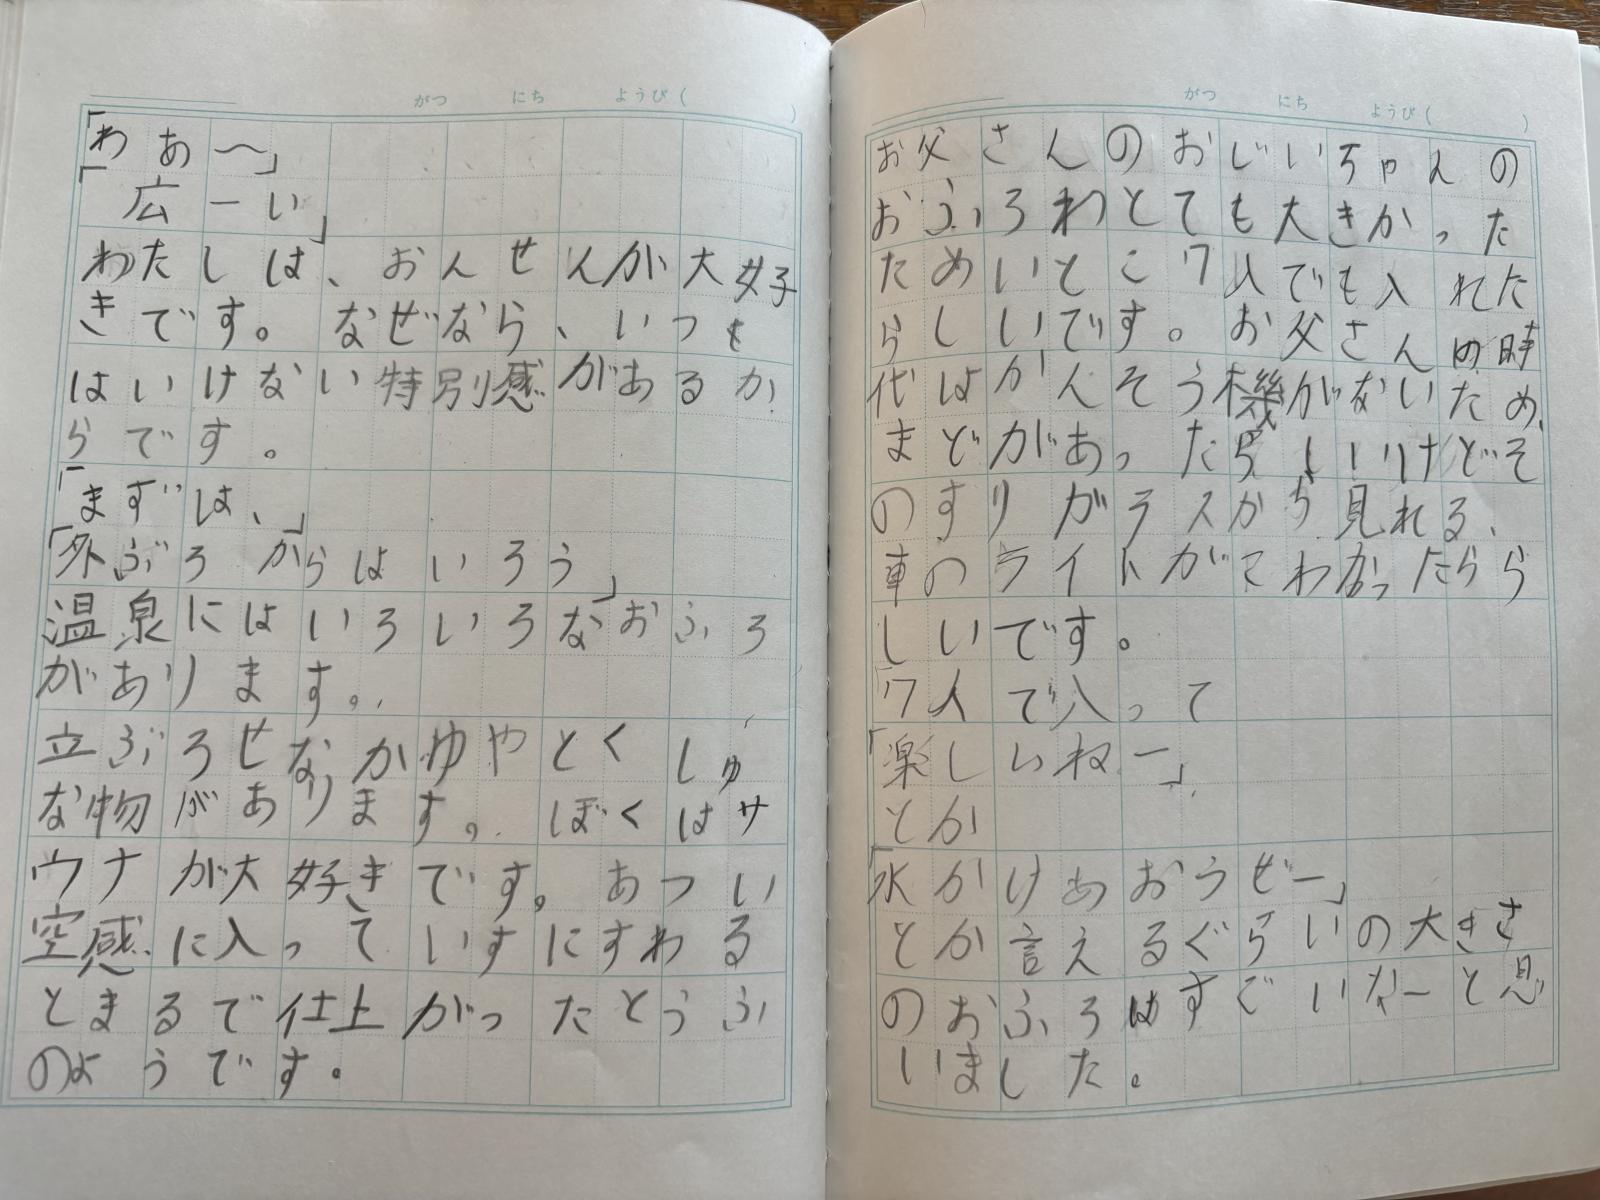 がつ にち ようび( )
「わあ〜」
「広ーい」
わたしは、おんせんが大好
きです。なぜなら、いつも
はいけない特別感があるか
らです。
「まずは、」
「外ぶろからはいろう」
温泉にはいろいろなおふろ
があります。
立ぶろせなかゆやとくしゅ
な物があります。ぼくはサ
ウナが大好きです。あつい
空感に入っていすにすわる
とまるで仕上がったとうふ
のようです。
がつ にち ようび( )
お父さんのおじいちゃんの
おふろわとても大きかった
ためいとこ7人でも入れた
らしいです。お父さんの時
代はかんそう機がないため、
まどがあったらしいけどそ
のすりガラスから見れる、
車のライトがこわかったらら
しいです。
「7人で入って
「楽しいねー」
とか
「水かけあおうぜー」
とか言えるぐらいの大きさ
のおふろはすごいなーと思
いました。